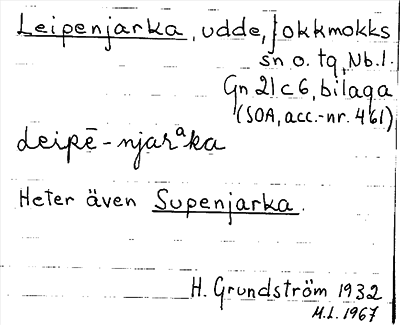 Leipenjarka, udde, Jokkmokks
sn o. tg, Nb.l.
Gn 21 c 6, bilaga
(SOA, acc.-nr. 461)
Leipē-njarᵃka
Heter även Supenjarka.
H. Grundström 1932
M.L. 1967